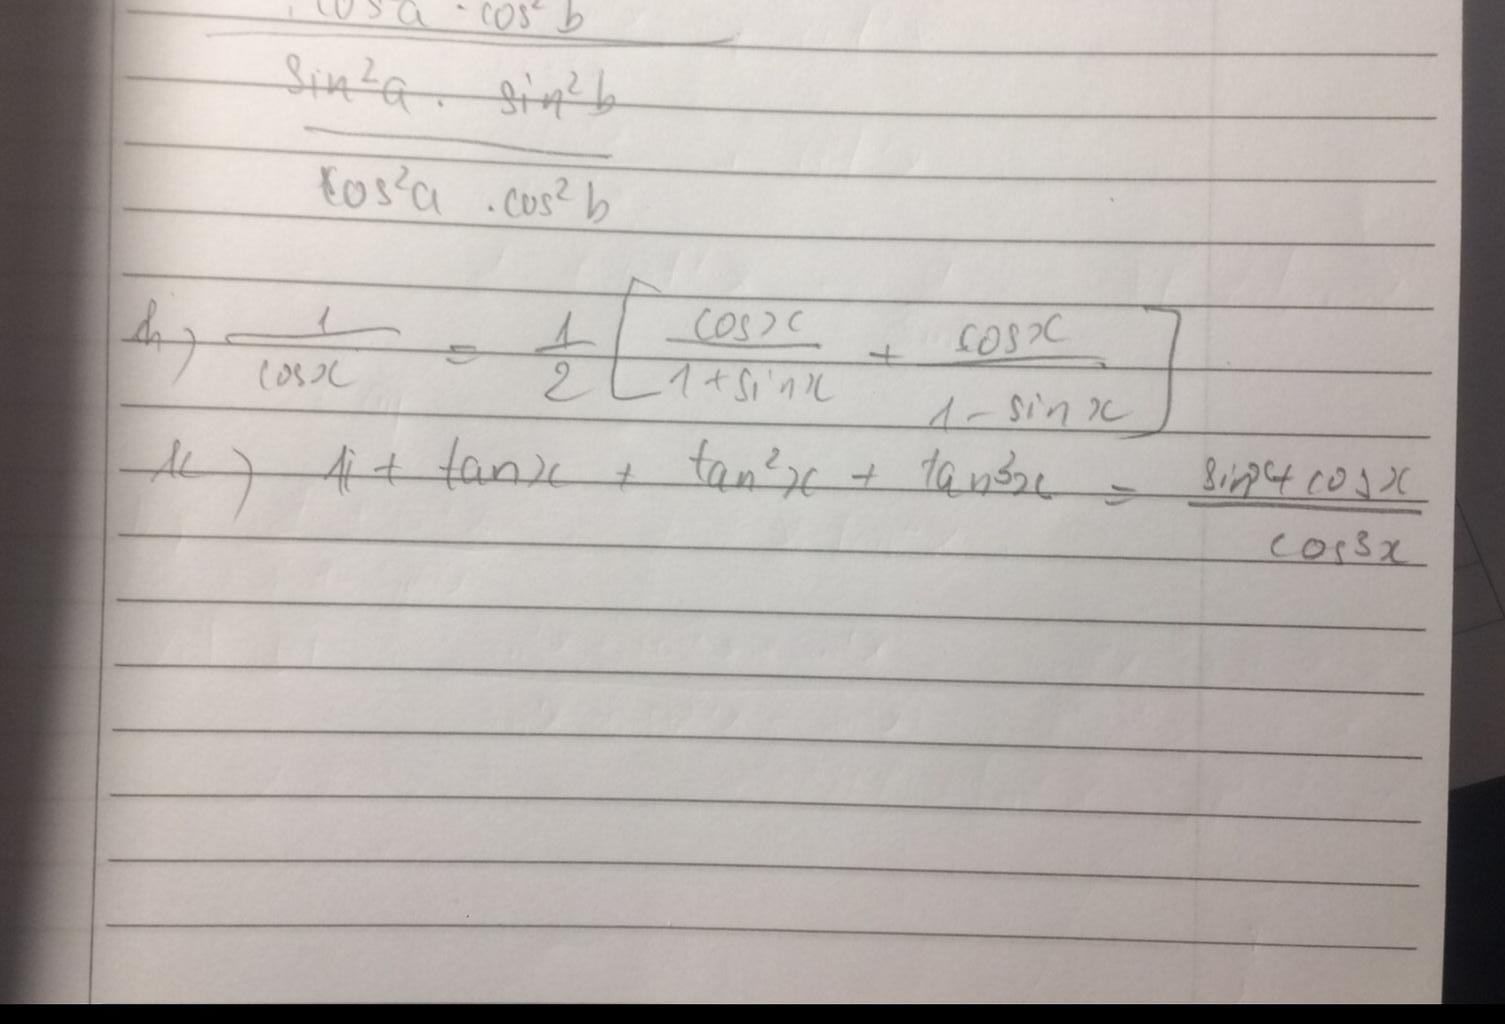 cos²a · cos²b
sin²a · sin²b
cos²a · cos²b
h) 1/cosx = 1/2 [ cosx/(1+sinx) + cosx/(1-sinx) ]
k) 1 + tanx + tan²x + tan³x = (sinx + cosx)/cos³x